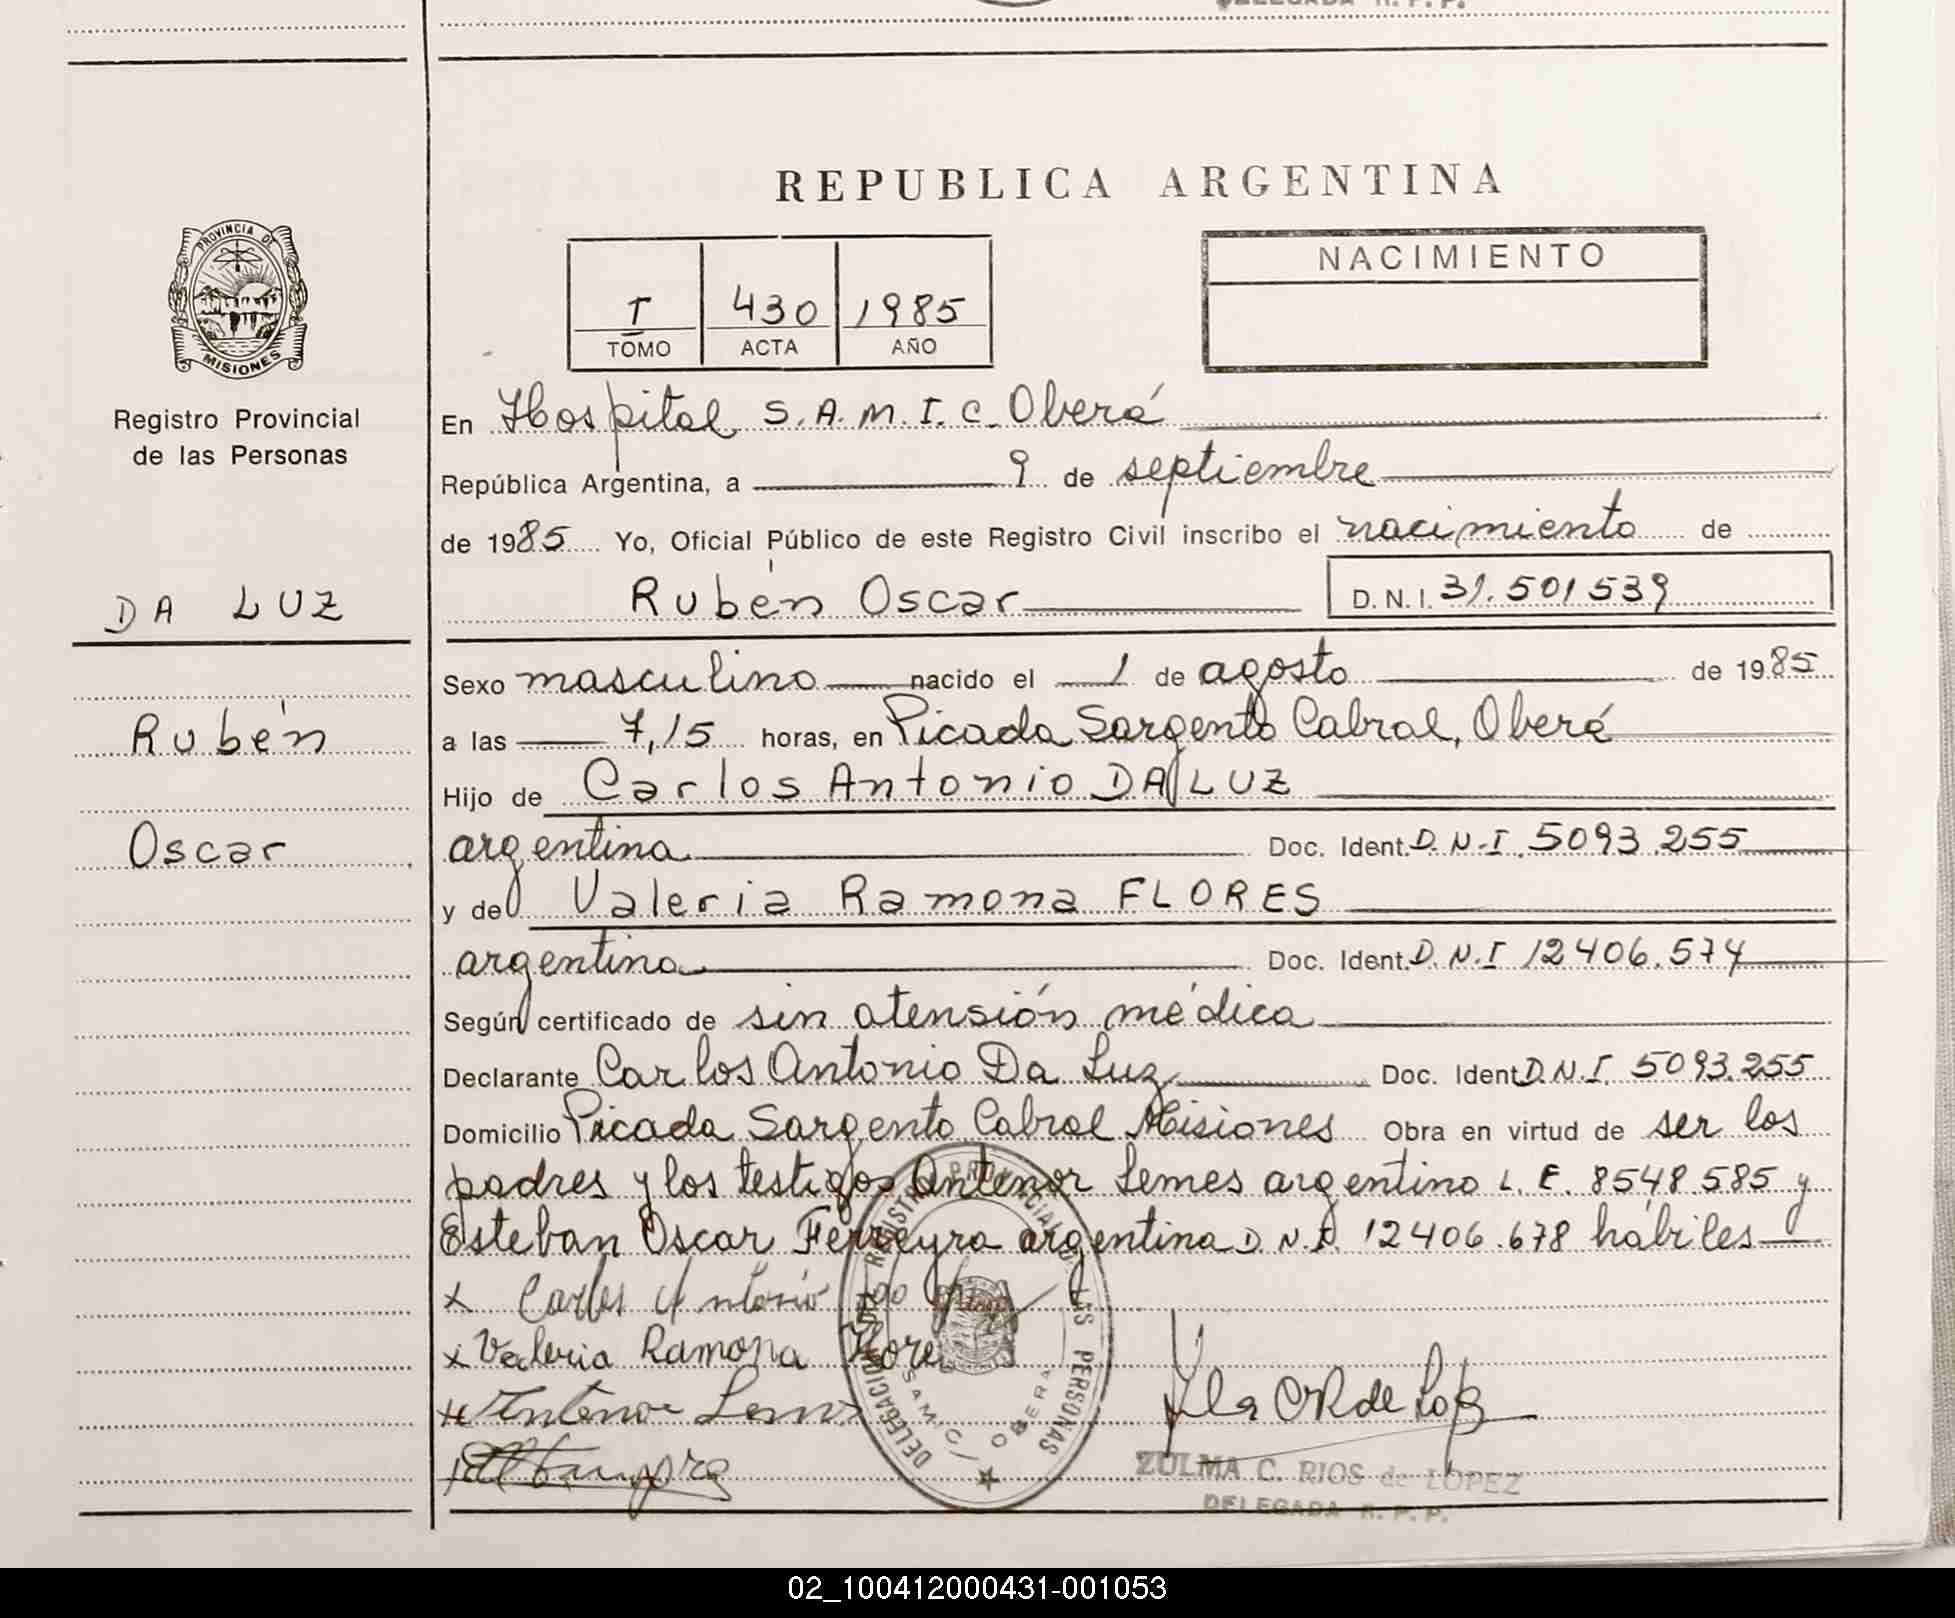 DELEGADA R. P. P.
REPUBLICA ARGENTINA
PROVINCIA DE
MISIONES
Registro Provincial
de las Personas
DA LUZ
Rubén
Oscar
T 430 1985
TOMO ACTA AÑO
NACIMIENTO
En Hospital S.A.M.I.C. Oberá
República Argentina, a 9 de septiembre
de 1985 Yo, Oficial Público de este Registro Civil inscribo el nacimiento de
Rubén Oscar D.N.I. 31.501539
Sexo masculino nacido el 1 de agosto de 1985
a las 7,15 horas, en Picada Sargento Cabral, Oberá
Hijo de Carlos Antonio DA LUZ
argentina Doc. Ident. D.N.I. 5093.255
y de Valeria Ramona FLORES
argentina Doc. Ident. D.N.I 12406.574
Según certificado de sin atensión médica
Declarante Carlos Antonio Da Luz Doc. Ident D.N.I. 5093.255
Domicilio Picada Sargento Cabral Misiones Obra en virtud de ser los
padres y los testigos Antenor Lemes argentino L.E. 8548.585 y
Esteban Oscar Ferreyra argentina D.N.I. 12406.678 hábiles
x Carlos Antonio
x Valeria Ramona Flores
Antenor Lemes
DELEGACION REGISTRO PROVINCIAL DE LAS PERSONAS
SAMIC OBERA
ZULMA C. RIOS de LOPEZ
DELEGADA R. P. P.
02_100412000431-001053